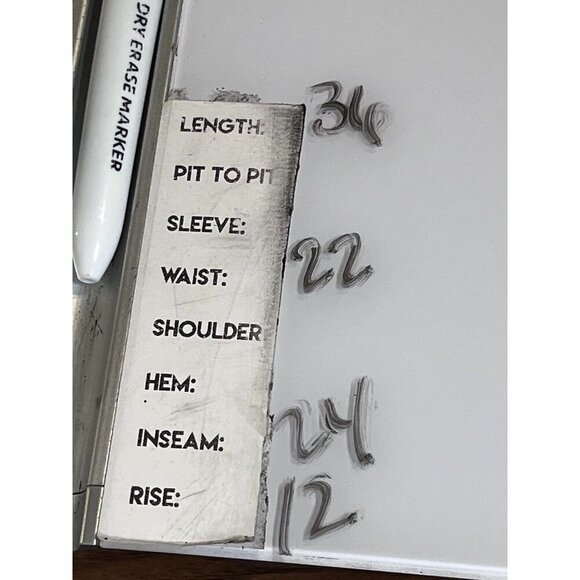 DRY ERASE MARKER
LENGTH: 36
PIT TO PIT
SLEEVE:
WAIST: 22
SHOULDER
HEM:
INSEAM: 24
RISE: 12